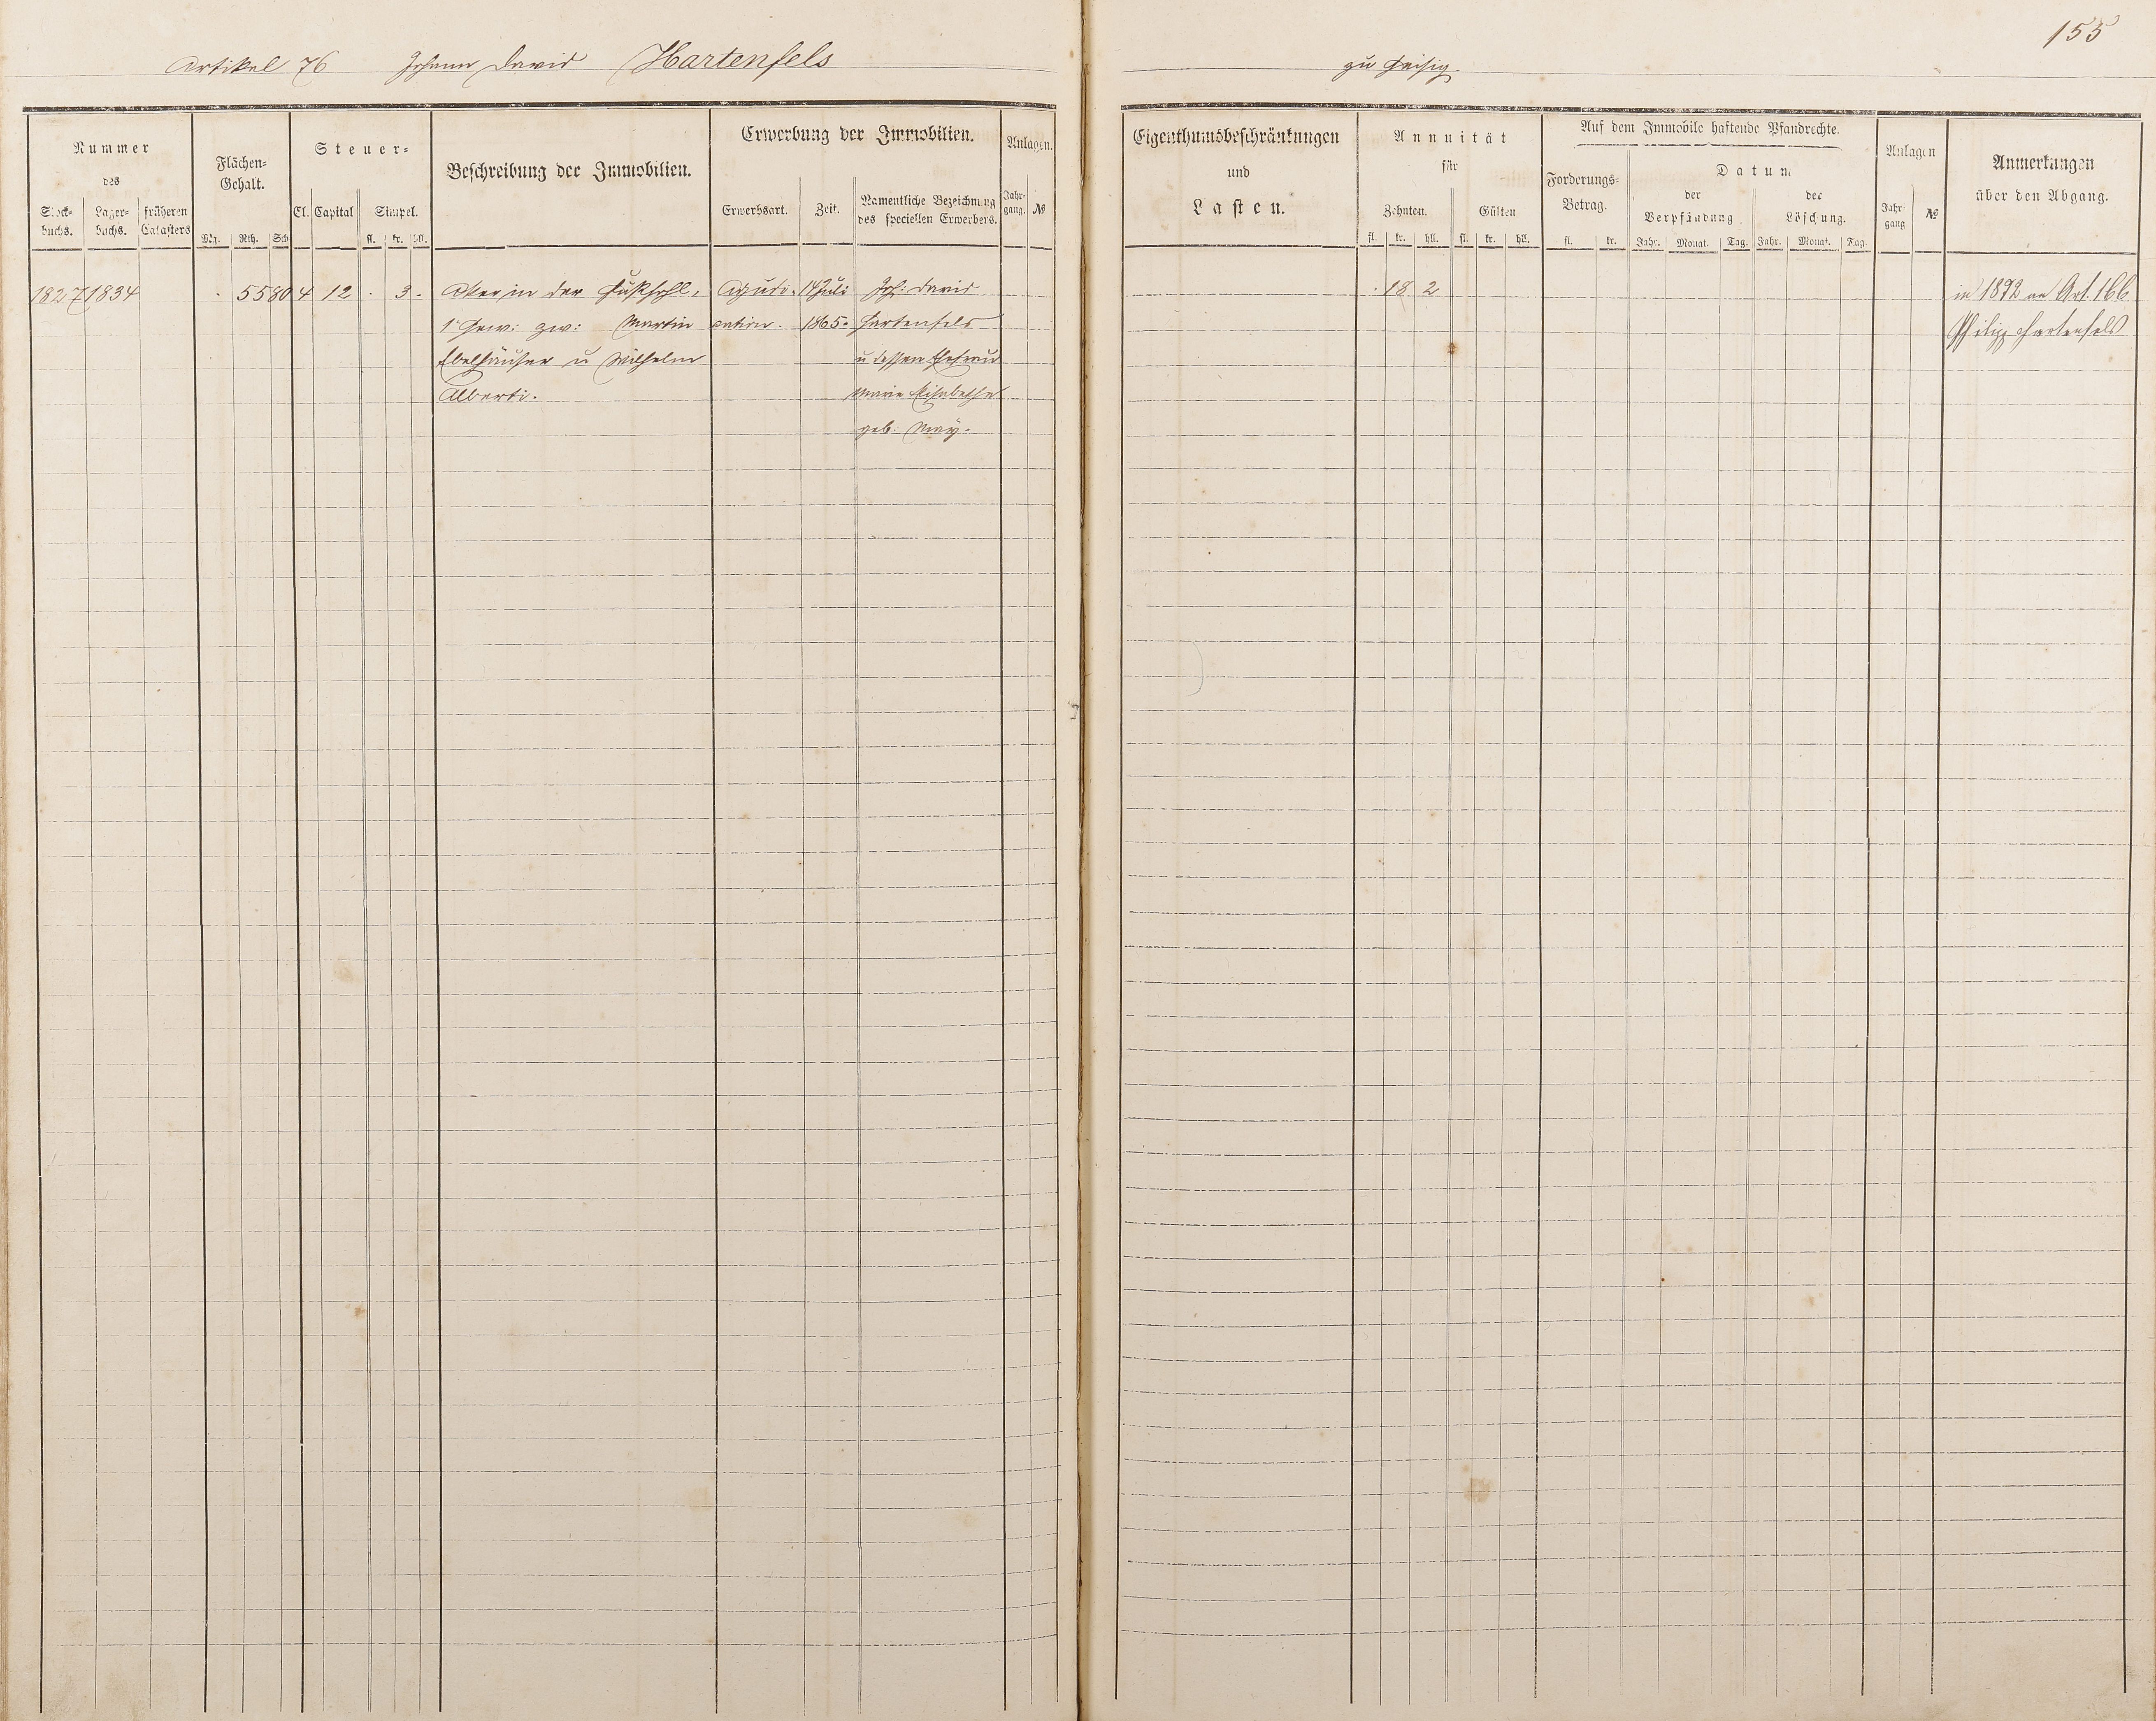 155
Artikel 76 Johann David Hartenfels zu Geisig.
Nummer des
Stock-buchs. Lager-buchs. früheren Catasters
Flächen-Gehalt.
Mg. Rth. Sch
Steuer-
Cl. Capital Simpel.
fl. kr. hll.
Beschreibung der Immobilien.
Erwerbung der Immobilien.
Erwerbsart. Zeit. Namentliche Bezeichnung des speciellen Erwerbers.
Anlagen.
Jahr-gang. №
Eigenthumsbeschränkungen
und
Lasten.
Annuität
für
Zehnten. Gülten
fl. kr. hll. fl. kr. hll.
Auf dem Immobile haftende Pfandrechte.
Forderungs-Betrag.
fl. kr.
Datum
der Verpfändung der Löschung.
Jahr. Monat. Tag. Jahr. Monat. Tag.
Anlagen
Jahr-gang №
Anmerkungen
über den Abgang.
1827 1834 . 55 80 4 12 . 3 . Aker in der 
1' Gew: zw: Martin
Ebelhäuser u Wilhelm
Alberti.
Adjudi-
cation.
14 Juli
1865.
Joh: David
Hartenfels
u dessen Ehefrau
Marie Elisabethe
geb: May.
. 18 2
in 1872 an Art. 166
Philipp Hartenfels